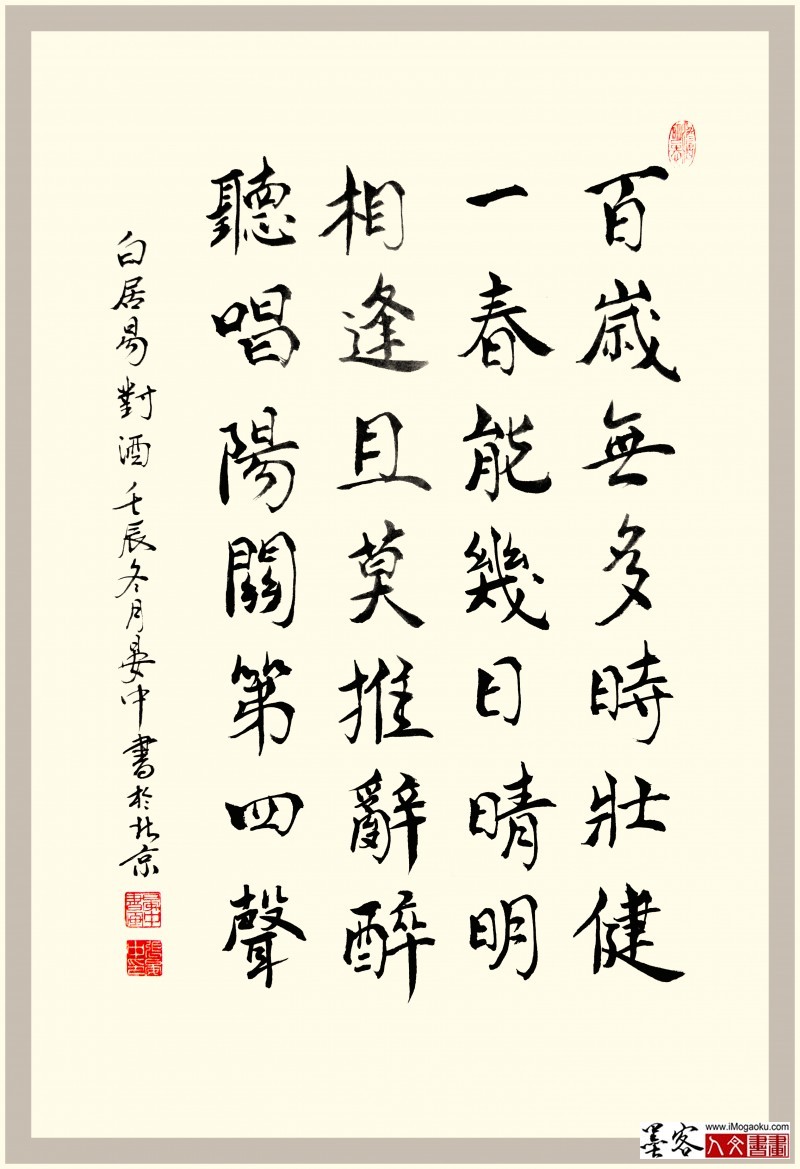 百歲無多時壯健
一春能幾日晴明
相逢且莫推辭醉
聽唱陽關第四聲
白居易對酒壬辰冬月晏中書於北京
墨客
www.iMogaoku.com
人文書畫